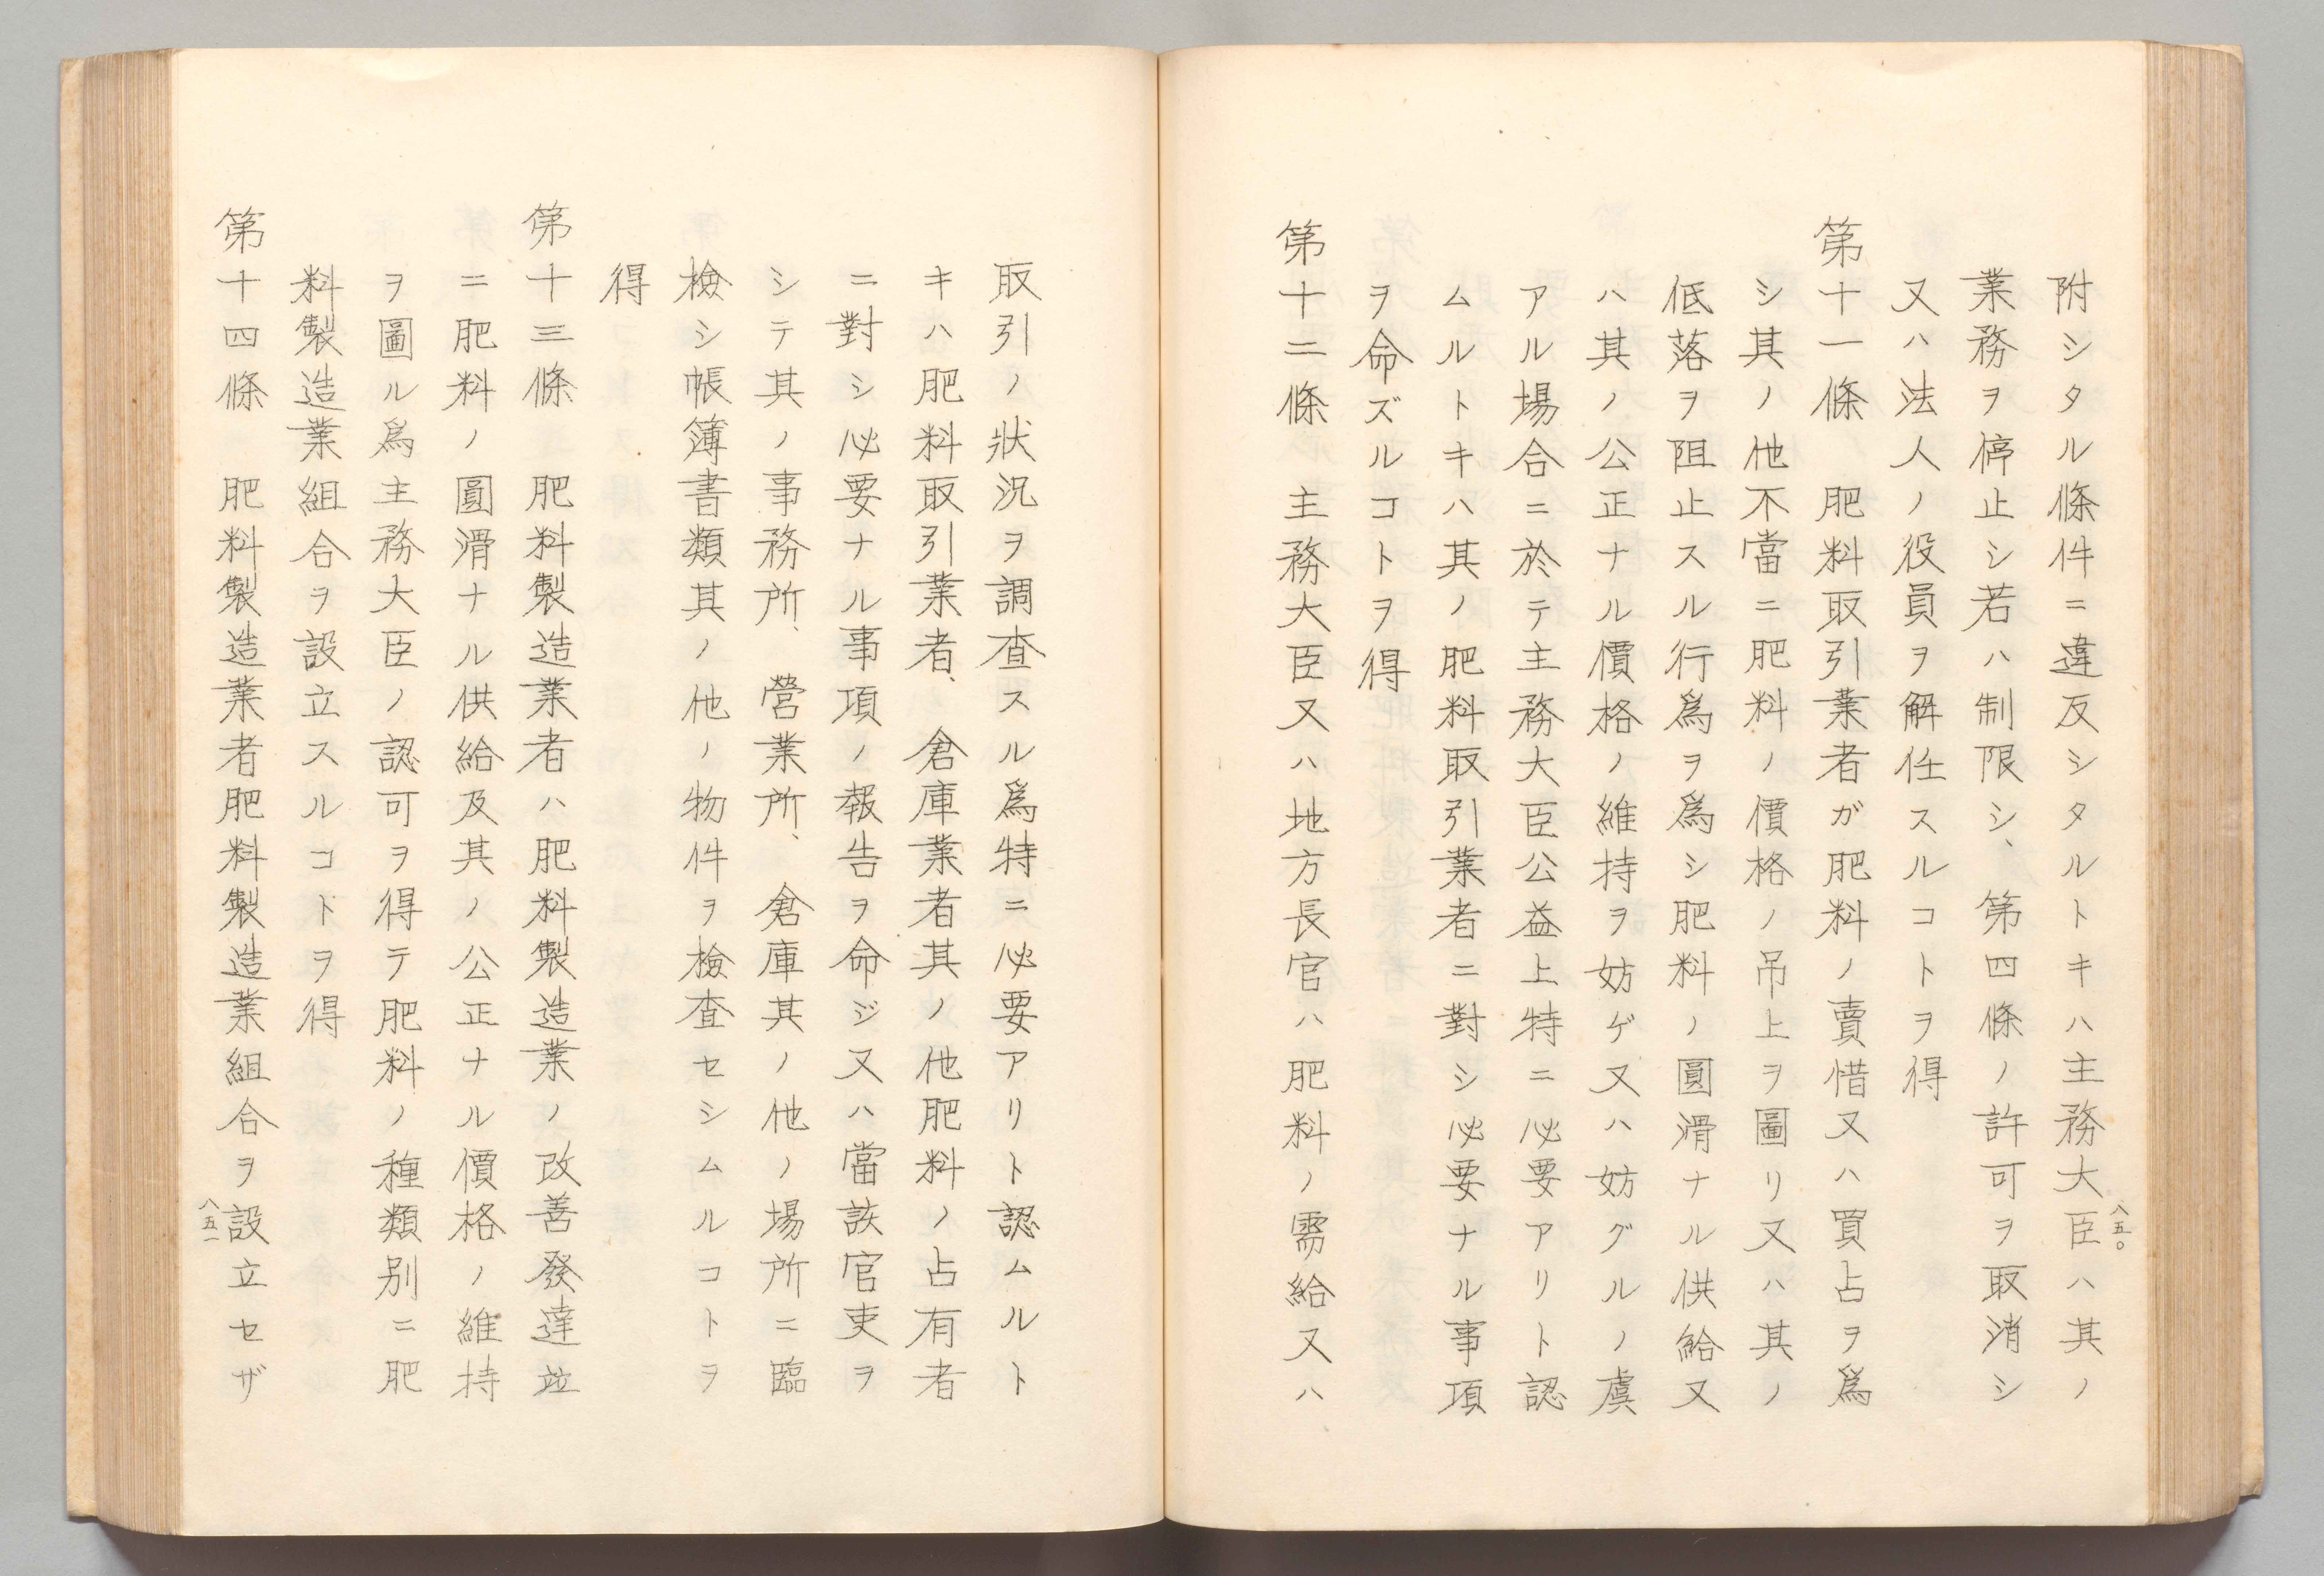 附シタル條件ニ違反シタルトキハ主務大臣ハ其ノ
業務ヲ停止シ若ハ制限シ、第四條ノ許可ヲ取消シ
又ハ法人ノ役員ヲ解任スルコトヲ得
第十一條　肥料取引業者ガ肥料ノ賣惜又ハ買占ヲ爲
シ其ノ他不當ニ肥料ノ價格ノ吊上ヲ圖リ又ハ其ノ
低落ヲ阻止スル行爲ヲ爲シ肥料ノ圓滑ナル供給又
ハ其ノ公正ナル價格ノ維持ヲ妨ゲ又ハ妨グルノ虞
アル場合ニ於テ主務大臣公益上特ニ必要アリト認
ムルトキハ其ノ肥料取引業者ニ對シ必要ナル事項
ヲ命ズルコトヲ得
第十二條　主務大臣又ハ地方長官ハ肥料ノ需給又ハ
八五〇
取引ノ狀況ヲ調査スル爲特ニ必要アリト認ムルト
キハ肥料取引業者、倉庫業者其ノ他肥料ノ占有者
ニ對シ必要ナル事項ノ報告ヲ命ジ又ハ當該官吏ヲ
シテ其ノ事務所、營業所、倉庫其ノ他ノ場所ニ臨
檢シ帳簿書類其ノ他ノ物件ヲ檢查セシムルコトヲ
得
第十三條　肥料製造業者ハ肥料製造業ノ改善發達竝
ニ肥料ノ圓滑ナル供給及其ノ公正ナル價格ノ維持
ヲ圖ル爲主務大臣ノ認可ヲ得テ肥料ノ種類別ニ肥
料製造業組合ヲ設立スルコトヲ得
第十四條　肥料製造業者肥料製造業組合ヲ設立セザ
八五一